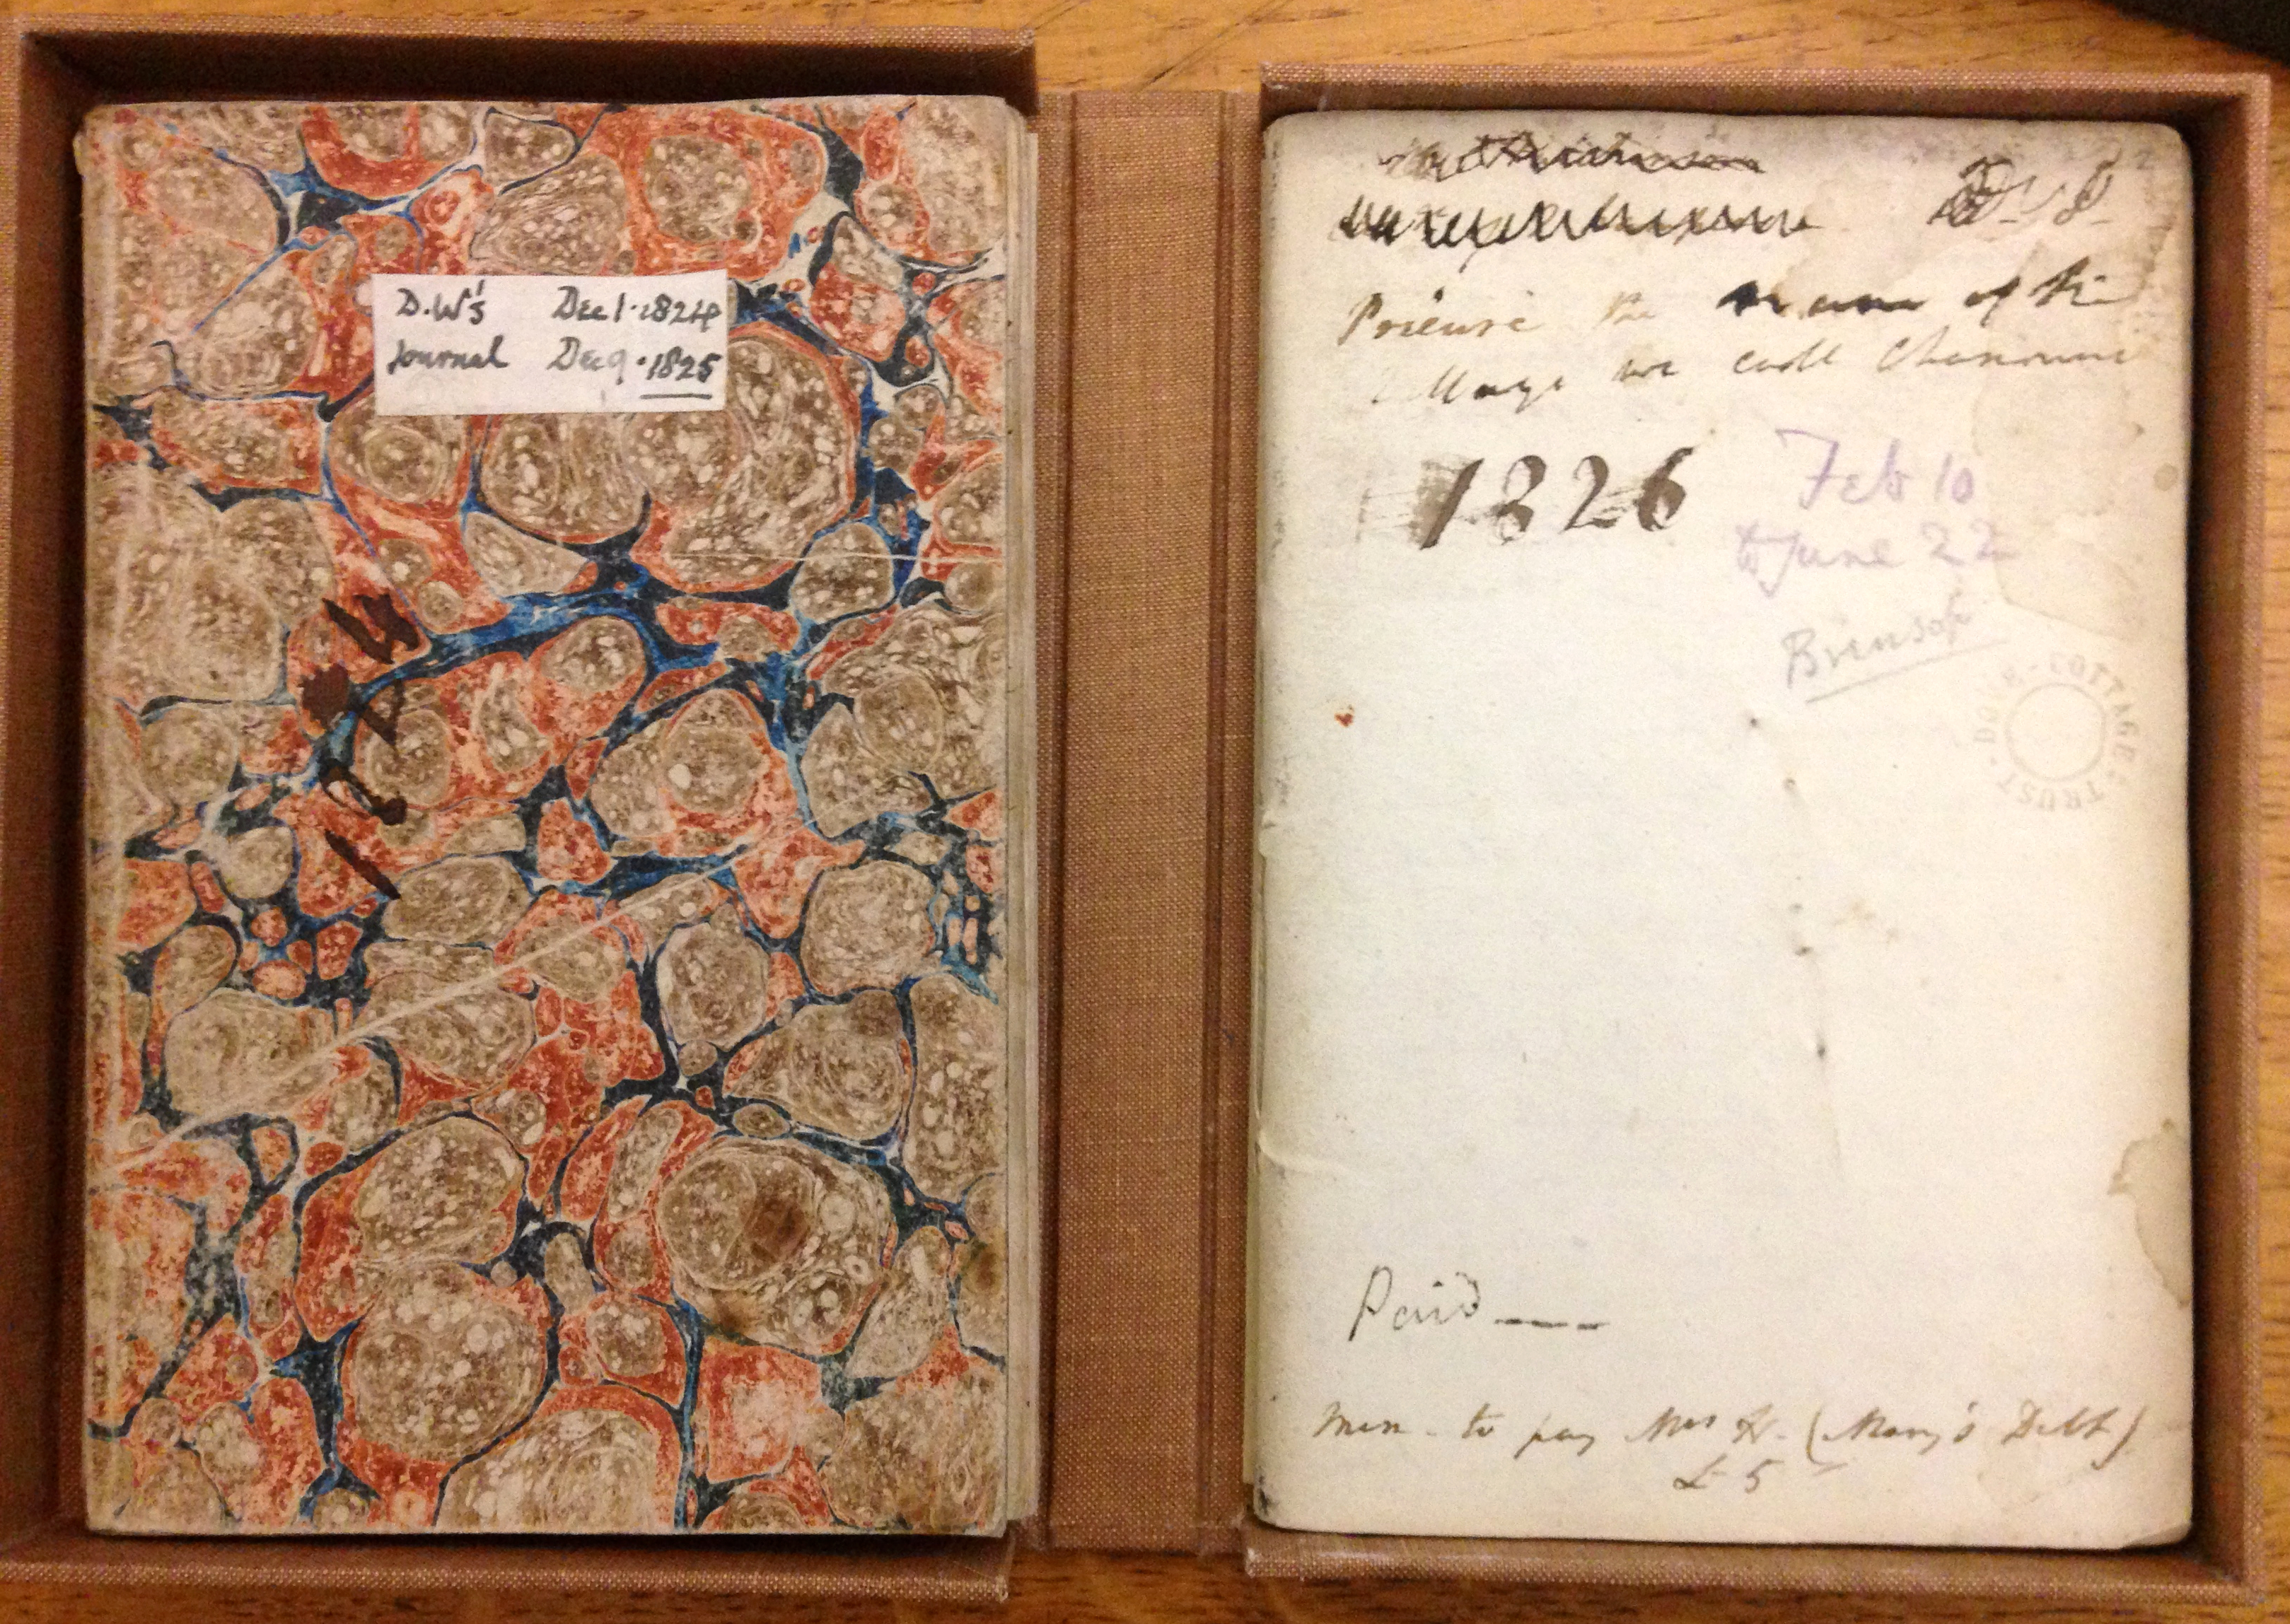 D.W's Dec 1. 1824
Journal Dec 9. 1825
Prieuré the name of the
village we call Chamouni
1826
Feb 10
to June 22
Brinsop
DOVE · COTTAGE · TRUST ·
Paid —
Mem. to pay Mrs H. (Mary's Debt)
£ 5